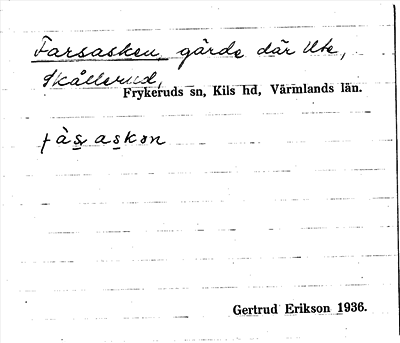 Farsasken, gärde där Ute,
Skållerud,
Frykeruds sn, Kils hd, Värmlands län.
fàs̱as̱kən
Gertrud Erikson 1936.